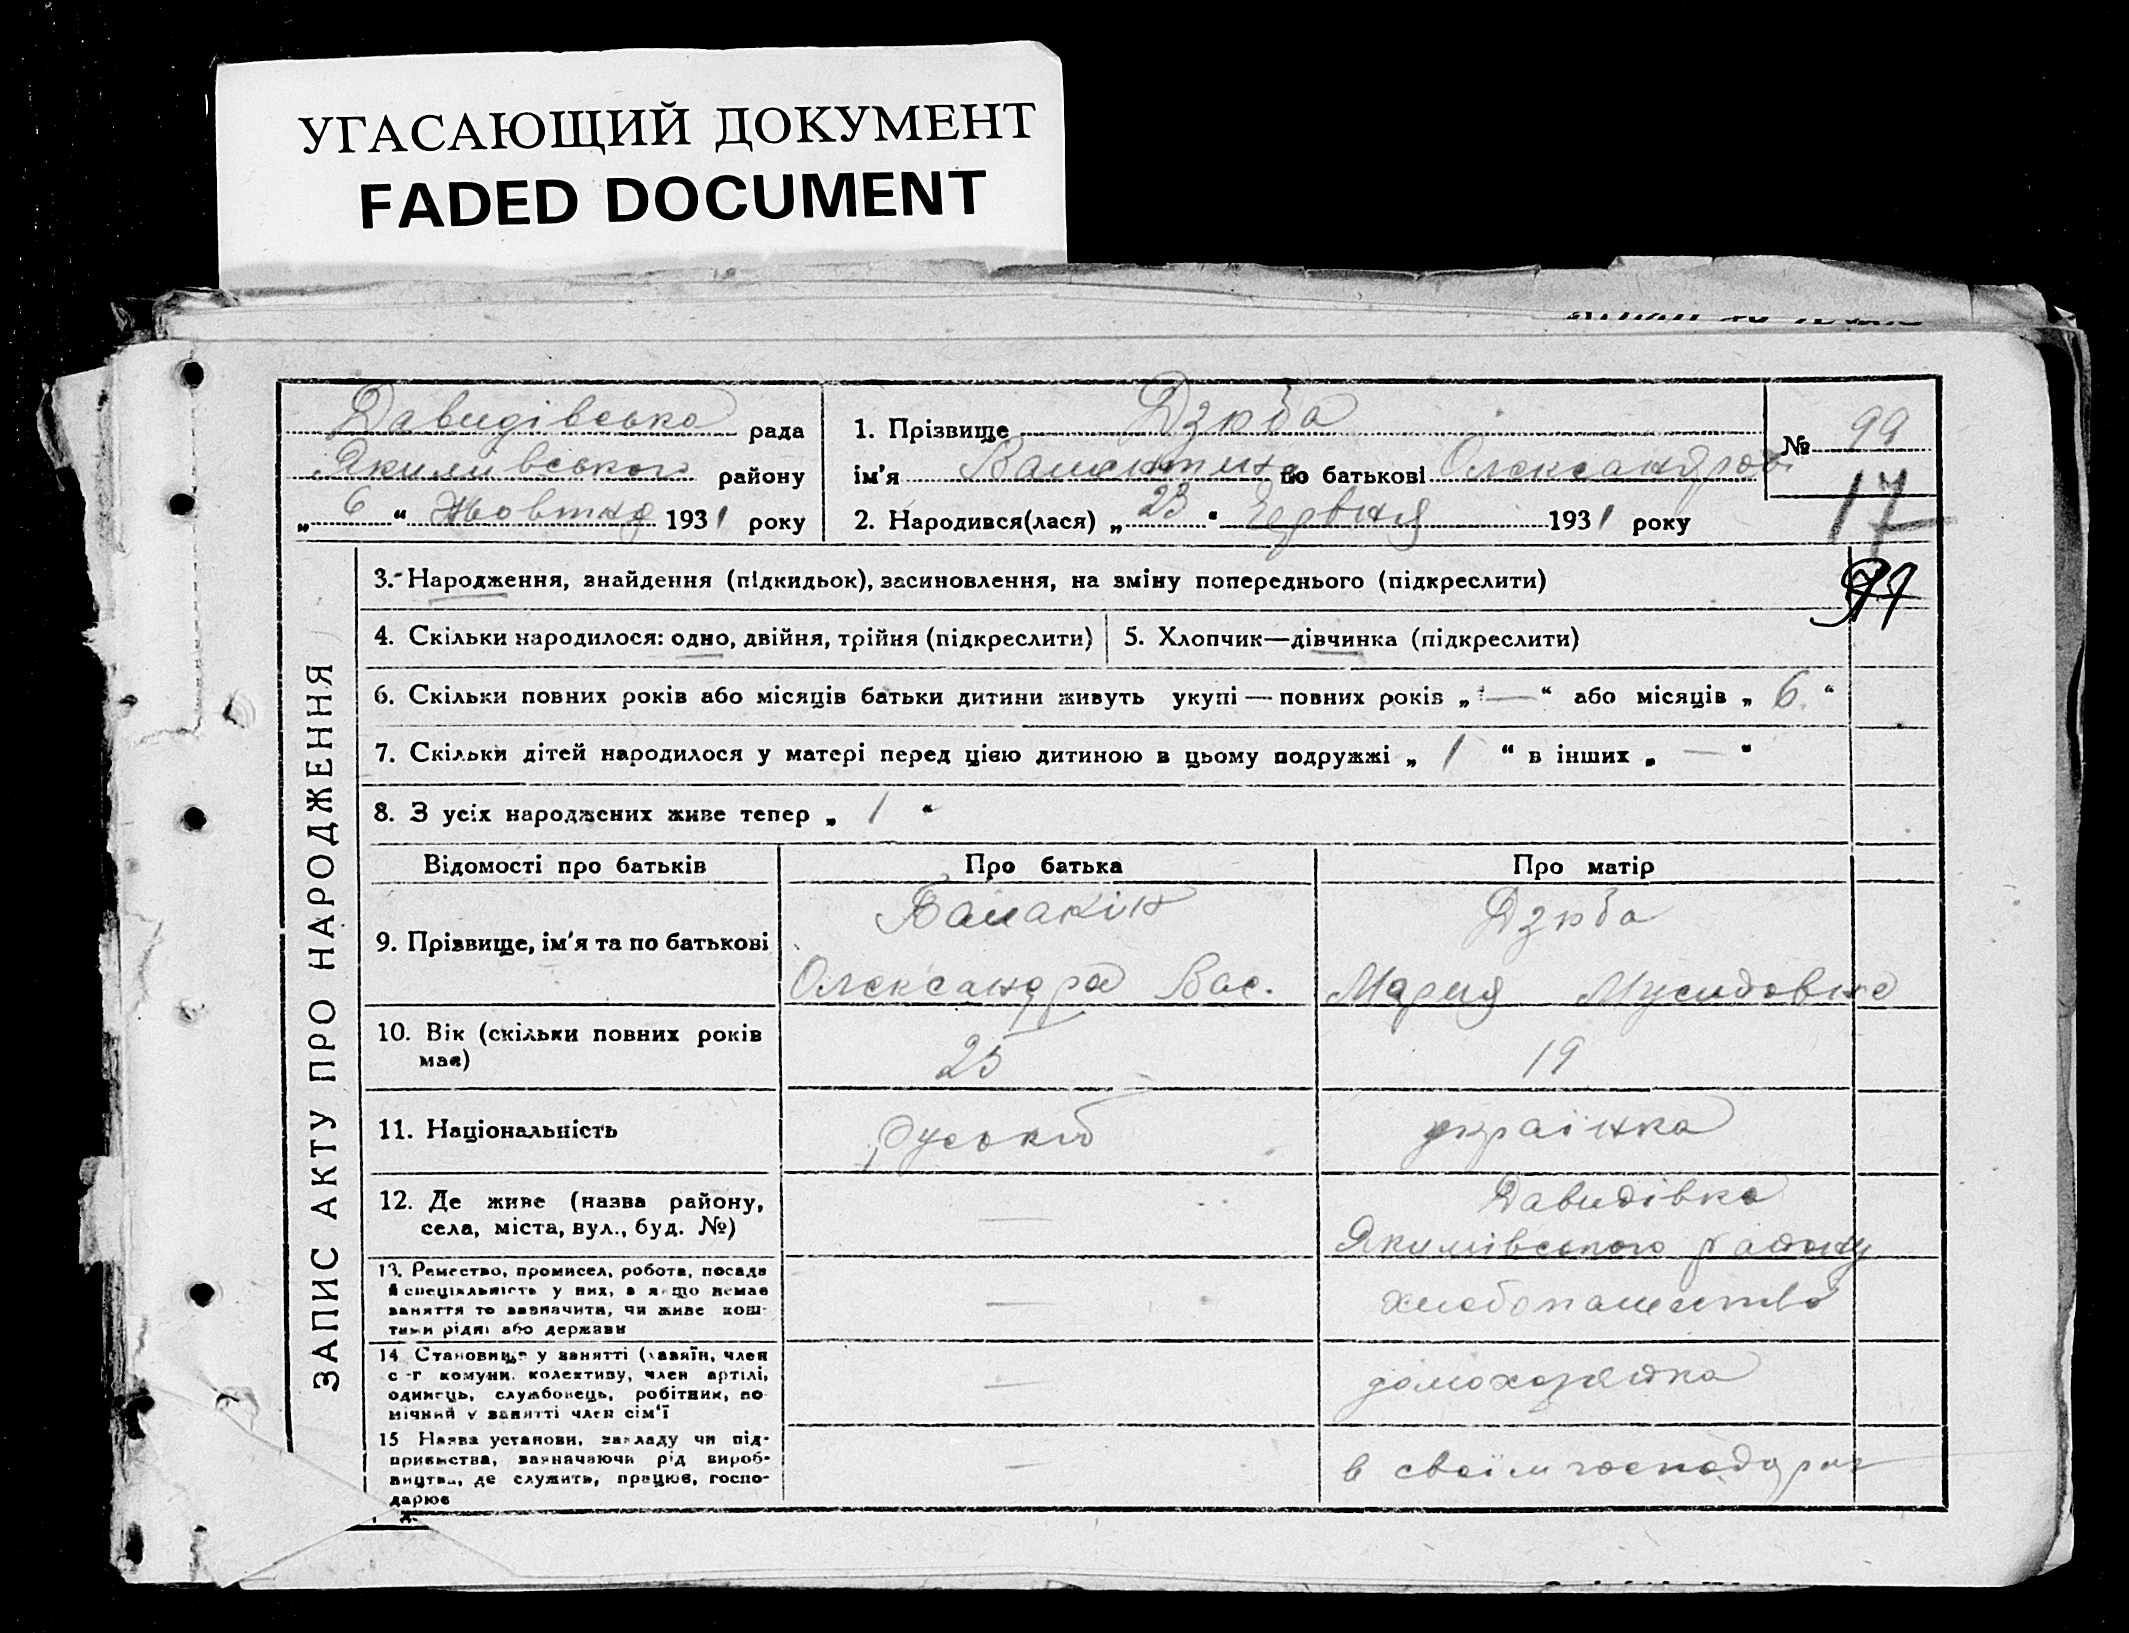 УГАСАЮЩИЙ ДОКУМЕНТ
FADED DOCUMENT
Давидівська рада
Якимівського району
„ 6 “ Жовтня 1931 року
1. Прізвище Дзюба
ім'я Валентина по батькові Олександрові
2. Народився(лася) „ 23 “ Червня 1931 року
№ 99
17
ЗАПИС АКТУ ПРО НАРОДЖЕННЯ
3. Народження, знайдення (підкидьок), засиновлення, на зміну попереднього (підкреслити)
4. Скільки народилося: одно, двійня, трійня (підкреслити)
5. Хлопчик—дівчинка (підкреслити)
6. Скільки повних років або місяців батьки дитини живуть укупі — повних років „ — “ або місяців „ 6. “
7. Скільки дітей народилося у матері перед цією дитиною в цьому подружжі „ 1 “ в інших „ — “
8. З усіх народжених живе тепер „ 1 “
Відомості про батьків
Про батька
Про матір
9. Прізвище, ім'я та по батькові
Балакін
Олександра Вас.
Дзюба
Мария Мусидовна
10. Вік (скільки повних років
має)
25
19
11. Національність
руський
українка
12. Де живе (назва району,
села, міста, вул., буд. №)
—
Давидівка
Якимівського району
13. Ремество, промисел, робота, посада
й спеціяльність у них, а якщо немає
заняття то зазначити, чи живе кош-
тами рідні або держави
—
хлебопашество
14 Становище у занятті (хазяїн, член
с-г комуни, колективу, член артілі,
одинець, службовець, робітник, по-
мічний у занятті член сім'ї
—
домохозяйка
15 Назва установи, закладу чи під-
приємства, зазначаючи рід вироб-
ництва, де служить, працює, госпо-
дарює
—
в своїм господарст